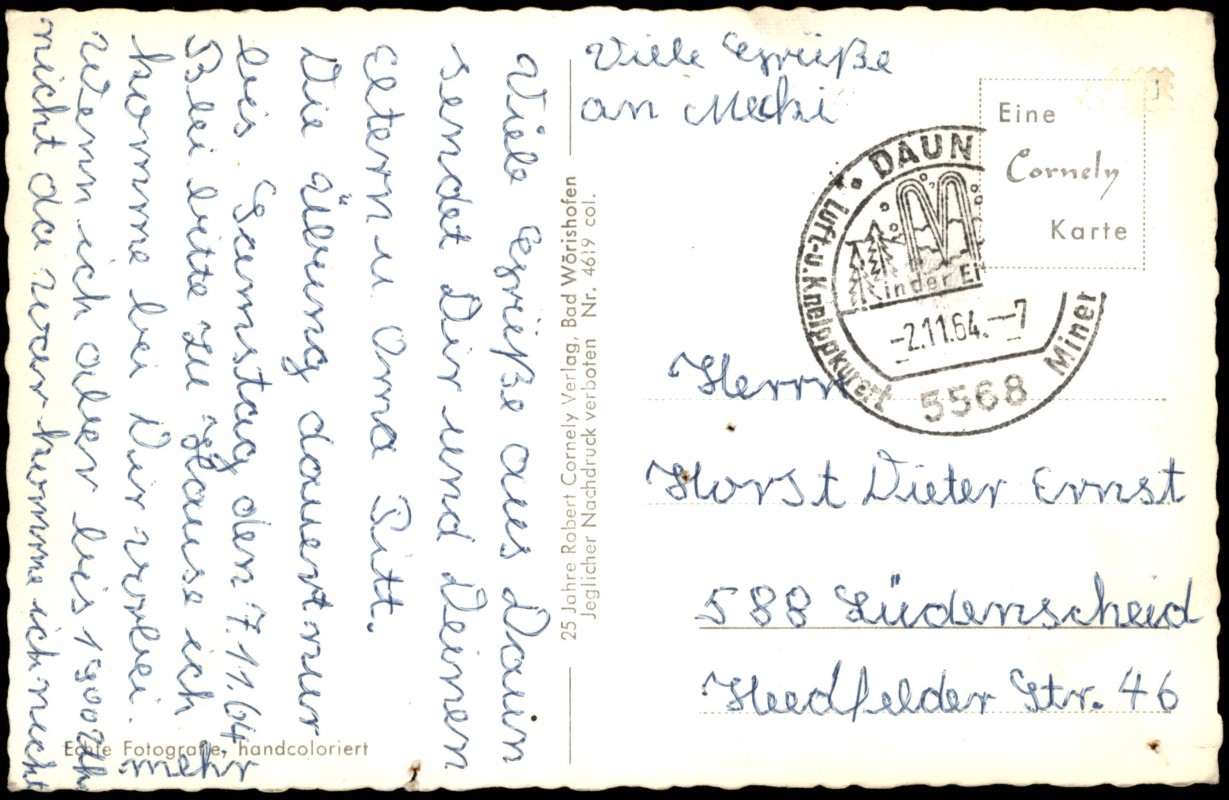 Viele Grüße aus Daun
sendet Dir und Deinen
Eltern u Oma Pitt.
Die Übung dauert nur
bis Samstag den 7.11.64
Blei bitte zu Hause ich
komme bei Dir vorbei.
Wenn ich aber bis 1900 Uhr
nicht da war komme ich nicht
mehr
Echte Fotografie, handcoloriert
25 Jahre Robert Cornely Verlag, Bad Wörishofen
Jeglicher Nachdruck verboten Nr. 4619 col.
Viele Grüße
an Mecki
Eine
Cornely
Karte
DAUN
Luft-u. Kneippkurort
Miner
in der Ei
-2.11.64.-7
5568
Herrn
Horst Dieter Ernst
588 Lüdenscheid
Heedfelder Str. 46